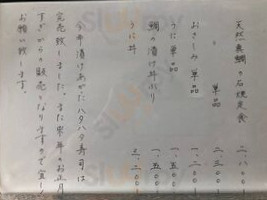 天然真鯛の石焼定食 二、八〇〇
〃 単品
おさしみ 単品 一、二〇〇
うに 単品 一、五〇〇
鯛の漬け丼ぶり 一、五〇〇
うに丼 三、三〇〇
今年漬けあがったハタハタ寿司は
完売致しました。また来年のお正月
すぎからの販売となりますので宜しく
お願い致します。